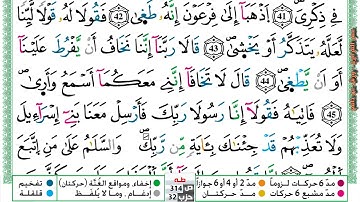 فِى ذِكْرِى ٤٢ ٱذْهَبَآ إِلَىٰ فِرْعَوْنَ إِنَّهُۥ طَغَىٰ ٤٣ فَقُولَا لَهُۥ قَوْلًا لَّيِّنًا
لَّعَلَّهُۥ يَتَذَكَّرُ أَوْ يَخْشَىٰ ٤٣ قَالَا رَبَّنَآ إِنَّنَا نَخَافُ أَن يَفْرُطَ عَلَيْنَآ
أَوْ أَن يَطْغَىٰ ٤٤ قَالَ لَا تَخَافَآ إِنَّنِى مَعَكُمَآ أَسْمَعُ وَأَرَىٰ ٤٥
فَأْتِيَاهُ فَقُولَآ إِنَّا رَسُولَا رَبِّكَ فَأَرْسِلْ مَعَنَا بَنِىٓ إِسْرَٰٓءِيلَ
وَلَا تُعَذِّبْهُمْ قَدْ جِئْنَٰكَ بِـَٔايَةٍ مِّن رَّبِّكَ وَٱلسَّلَٰمُ عَلَىٰ مَنِ ٱتَّبَعَ
مدّ 6 حركات لزوماً مدّ 2 أو 4 أو 6 جوازاً إخفاء، ومواقع الغُنَّة (حركتان) تفخيم
مدّ مشبع 6 حركات مدّ حركتان إدغام، وما لا يُلفظ قلقلة
طه
ص 314
حزب 32